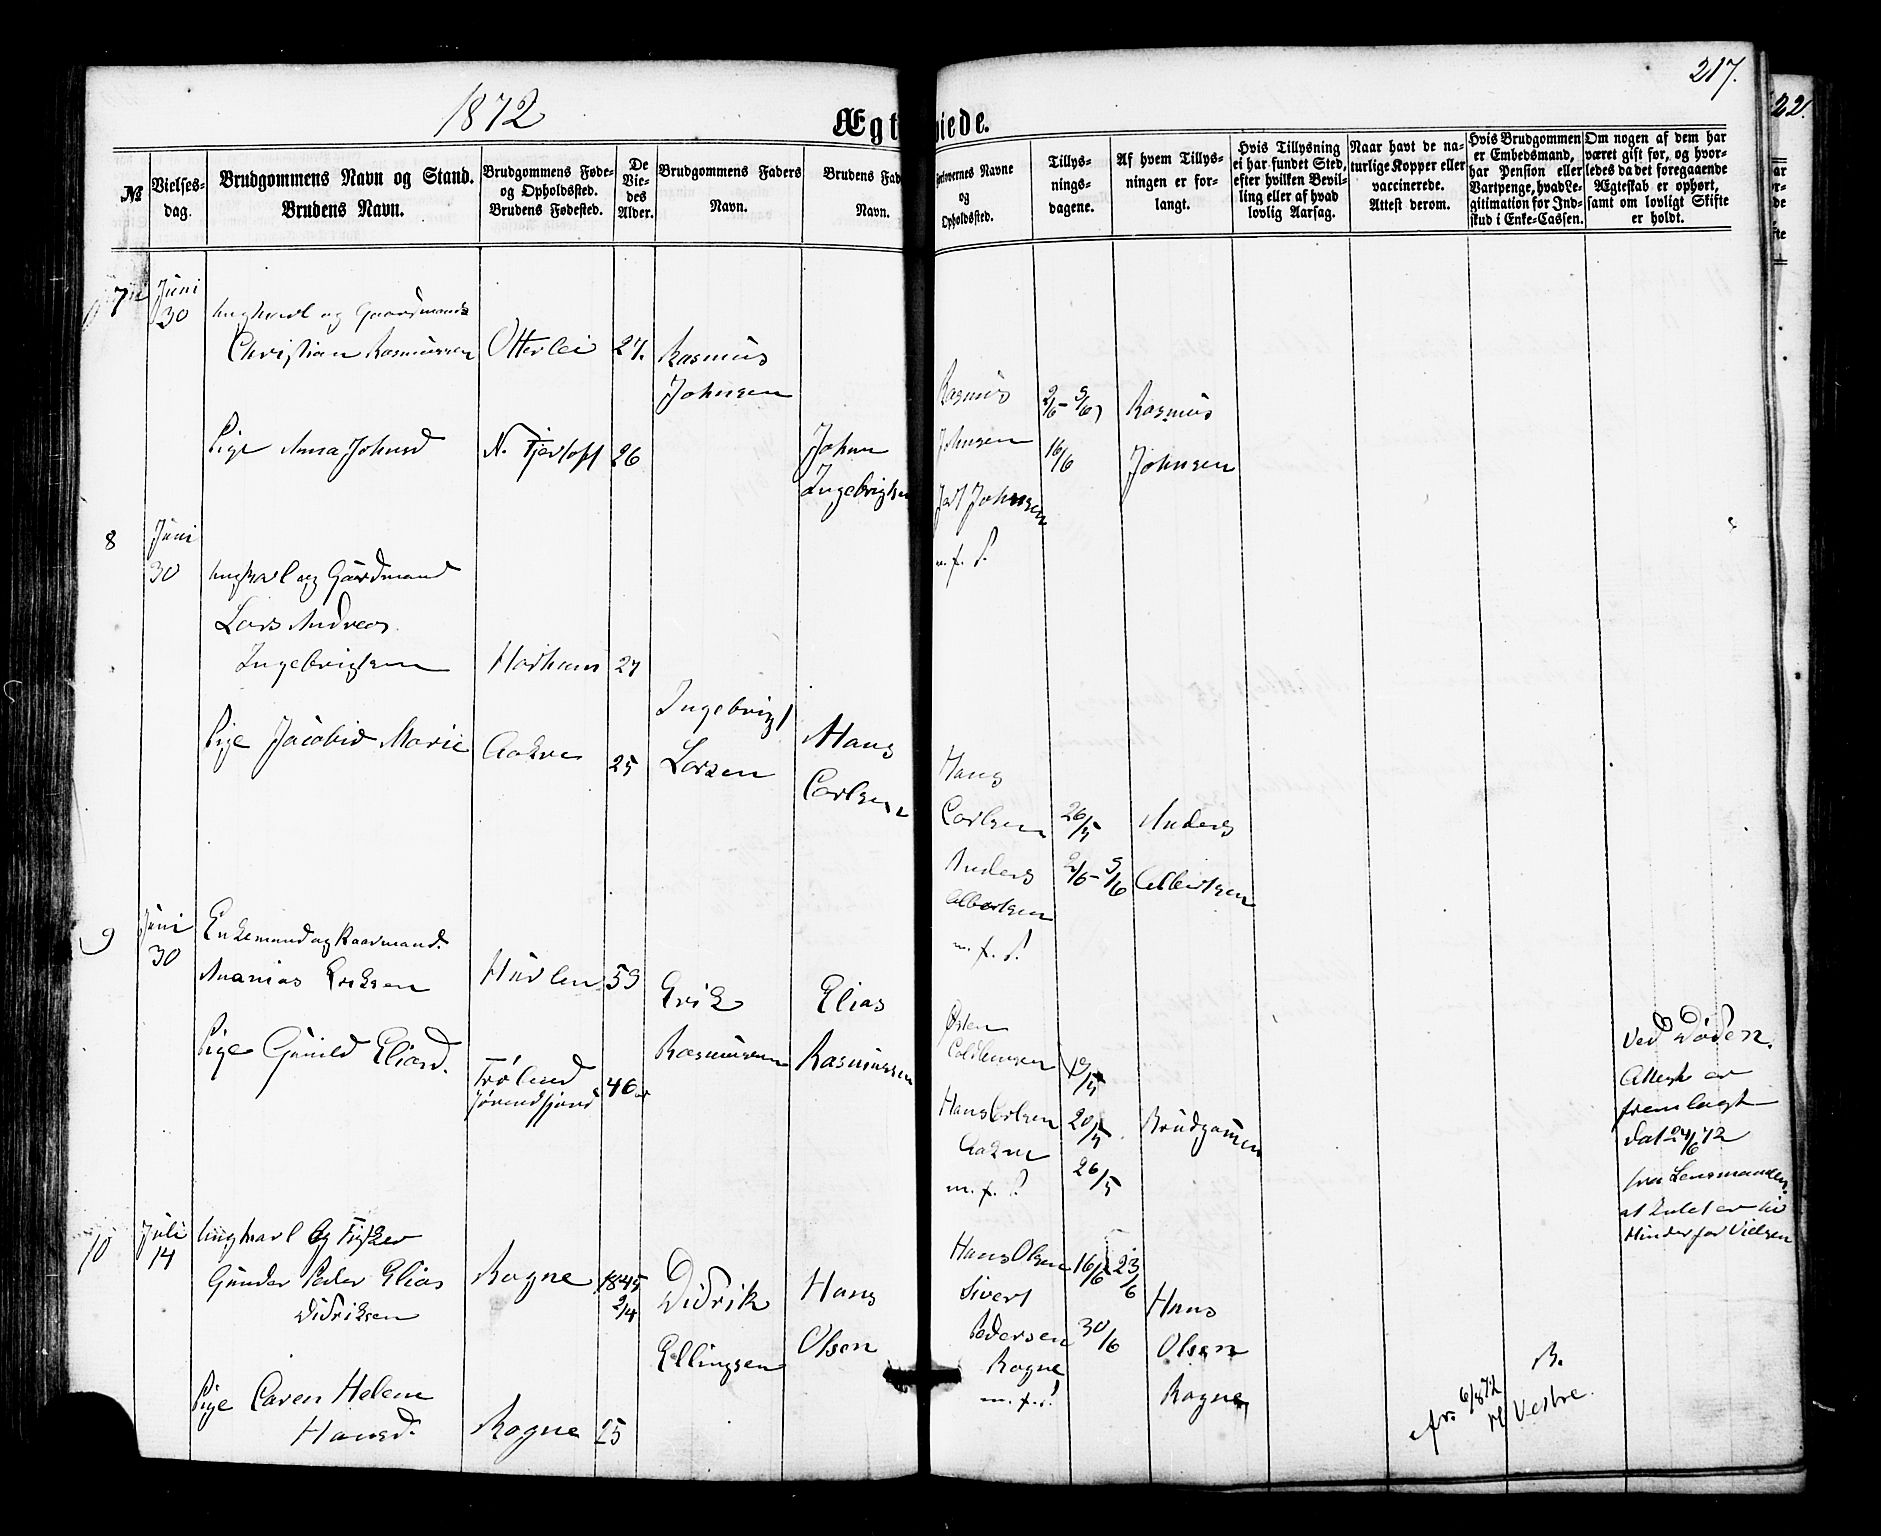 1872
217.
22.
Ægt viede.
№
Vielses-
dag.
Brudgommens Navn og Stand.
Brudens Navn.
Brudgommens Føde-
og Opholdssted.
Brudens Fødested.
De
Vie-
des
Alder.
Brudgommens Faders
Navn.
Brudens Fad
Navn.
Forlovernes Navne
og
Opholdssted.
Tillys-
nings-
dagene.
Af hvem Tillys-
ningen er for-
langt.
Hvis Tillysning
ei har fundet Sted,
efter hvilken Bevil-
ling eller af hvad
lovlig Aarsag.
Naar havt de na-
turlige Kopper eller
vaccinerede.
Attest derom.
Hvis Brudgommen
er Embedsmand,
har Pension eller
Vartpenge, hvad Le-
gitimation for Ind-
skud i Enke-Cassen.
Om nogen af dem har
været gift før, og hvor-
ledes da det foregaaende
Ægteskab er ophørt,
samt om lovligt Skifte
er holdt.
7
Juni
30
Ungkarl og Gaardmand
Christian Rasmussen
Otterlei
27.
Rasmus
Johnsen
Pige Anna Johnsd
N. Fjertoft
26
John
Ingebrigtsen
Rasmus
Johnsen
Johnsen
m. f. P.
2/6 - 9/6
16/6
Rasmus
Johnsen
8
Juni
30
Ungkarl og Gårdmand
Lars Andreas
Ingebrigtsen
Harhams
27
Ingebrigt
Larsen
Pige Jacobid Marie
Aakre
25
Hans
Carlsen
Hans
Carlsen
Anders
Albertsen
m. f. P.
26/5
2/6 - 9/6
Anders
Albertsen
9
Juni
30
Enkemand og Gaardmand
Ananias Eriksen
Hurlen
59
Erik
Rasmussen
Pige Gunild Eliasd.
46
Elias
Rasmussen
Østen
Hans Carlsen
m. f. P.
19/5
20/5
26/5
Brudgommen
Ved Døden.
Attest er
fremlagt
dat 24/6 72
fra Lensmanden,
at Intet er til
Hinder for Vielsen
10
Juli
14
Ungkarl og Fisker
Gunder Peder Elias
Didriksen
Rogne
1845
2/4
Didrik
Ellingsen
Pige Caren Helene
Hansd.
Rogne
25
Hans
Olsen
Hans Olsen
Sivert
Pedersen
Rogne
m. f. P.
16/6 23/6
30/6
Hans
Olsen
Rogne
6/8 72
B.
til Vestre.